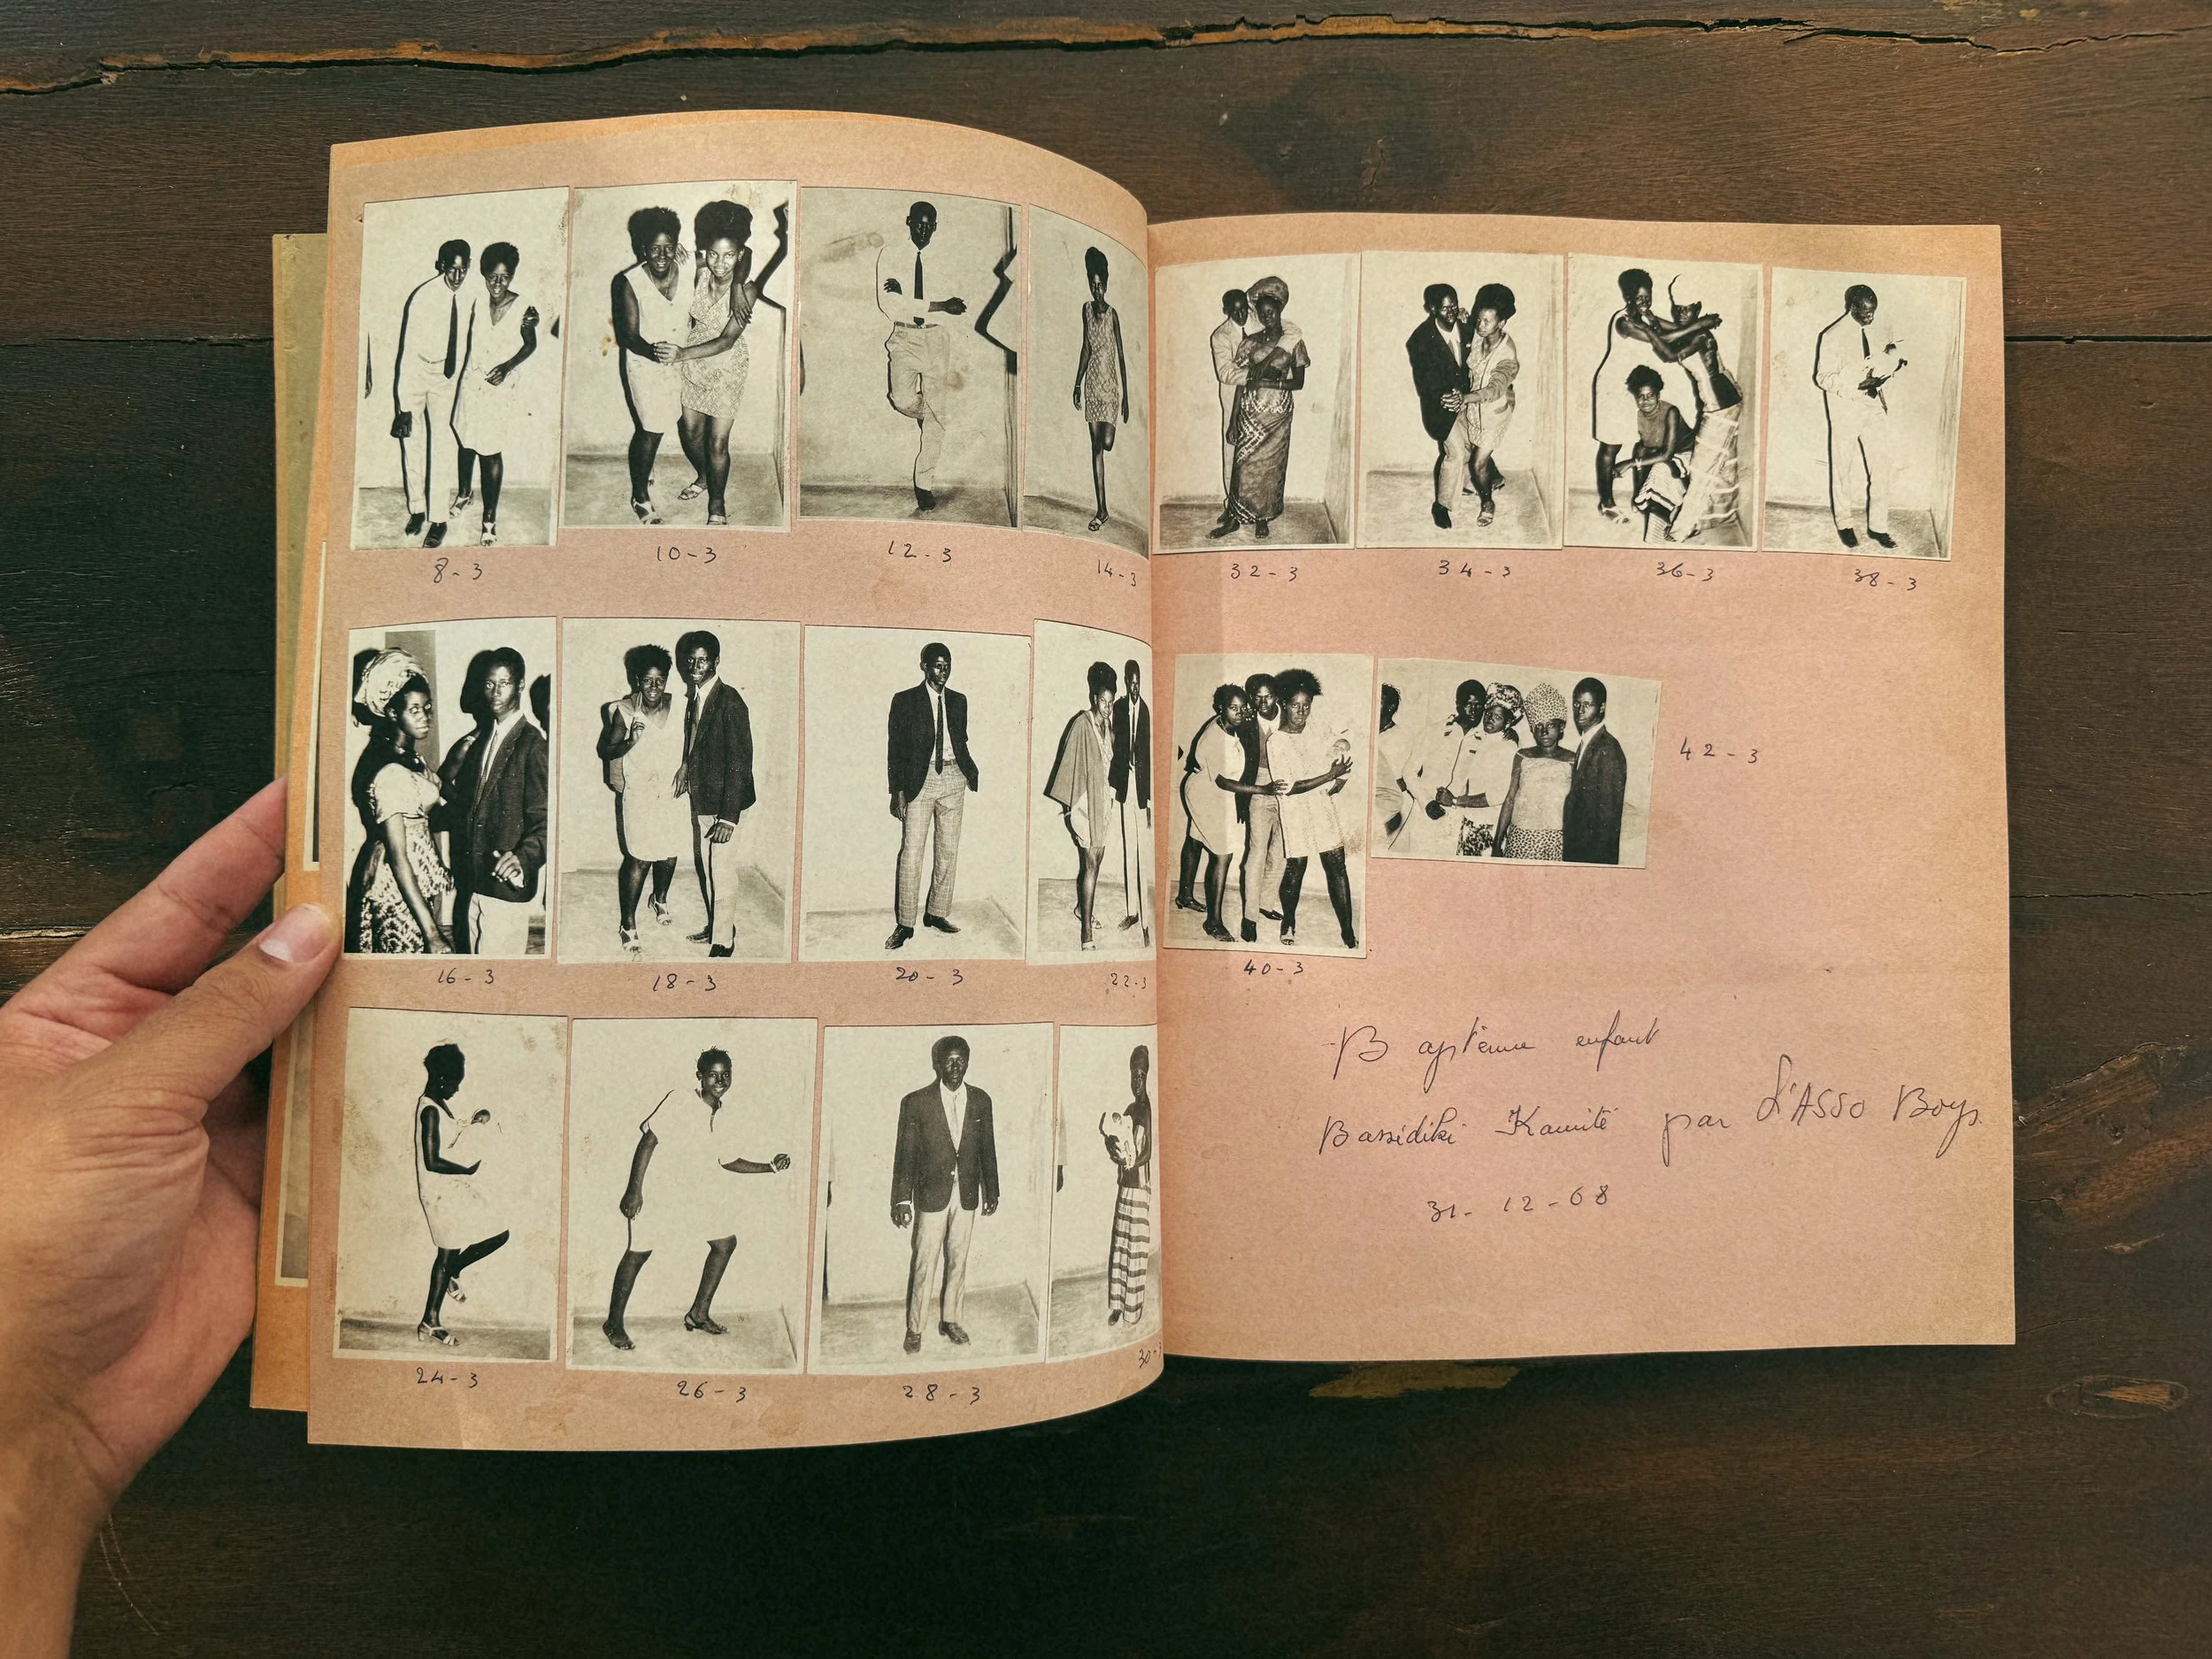 8-3
10-3
12-3
14-3
16-3
18-3
20-3
22-3
24-3
26-3
28-3
30-3
32-3
34-3
36-3
38-3
40-3
42-3
Baptême enfant
Bassidiki Kamité par L'ASSO Boys.
31-12-68